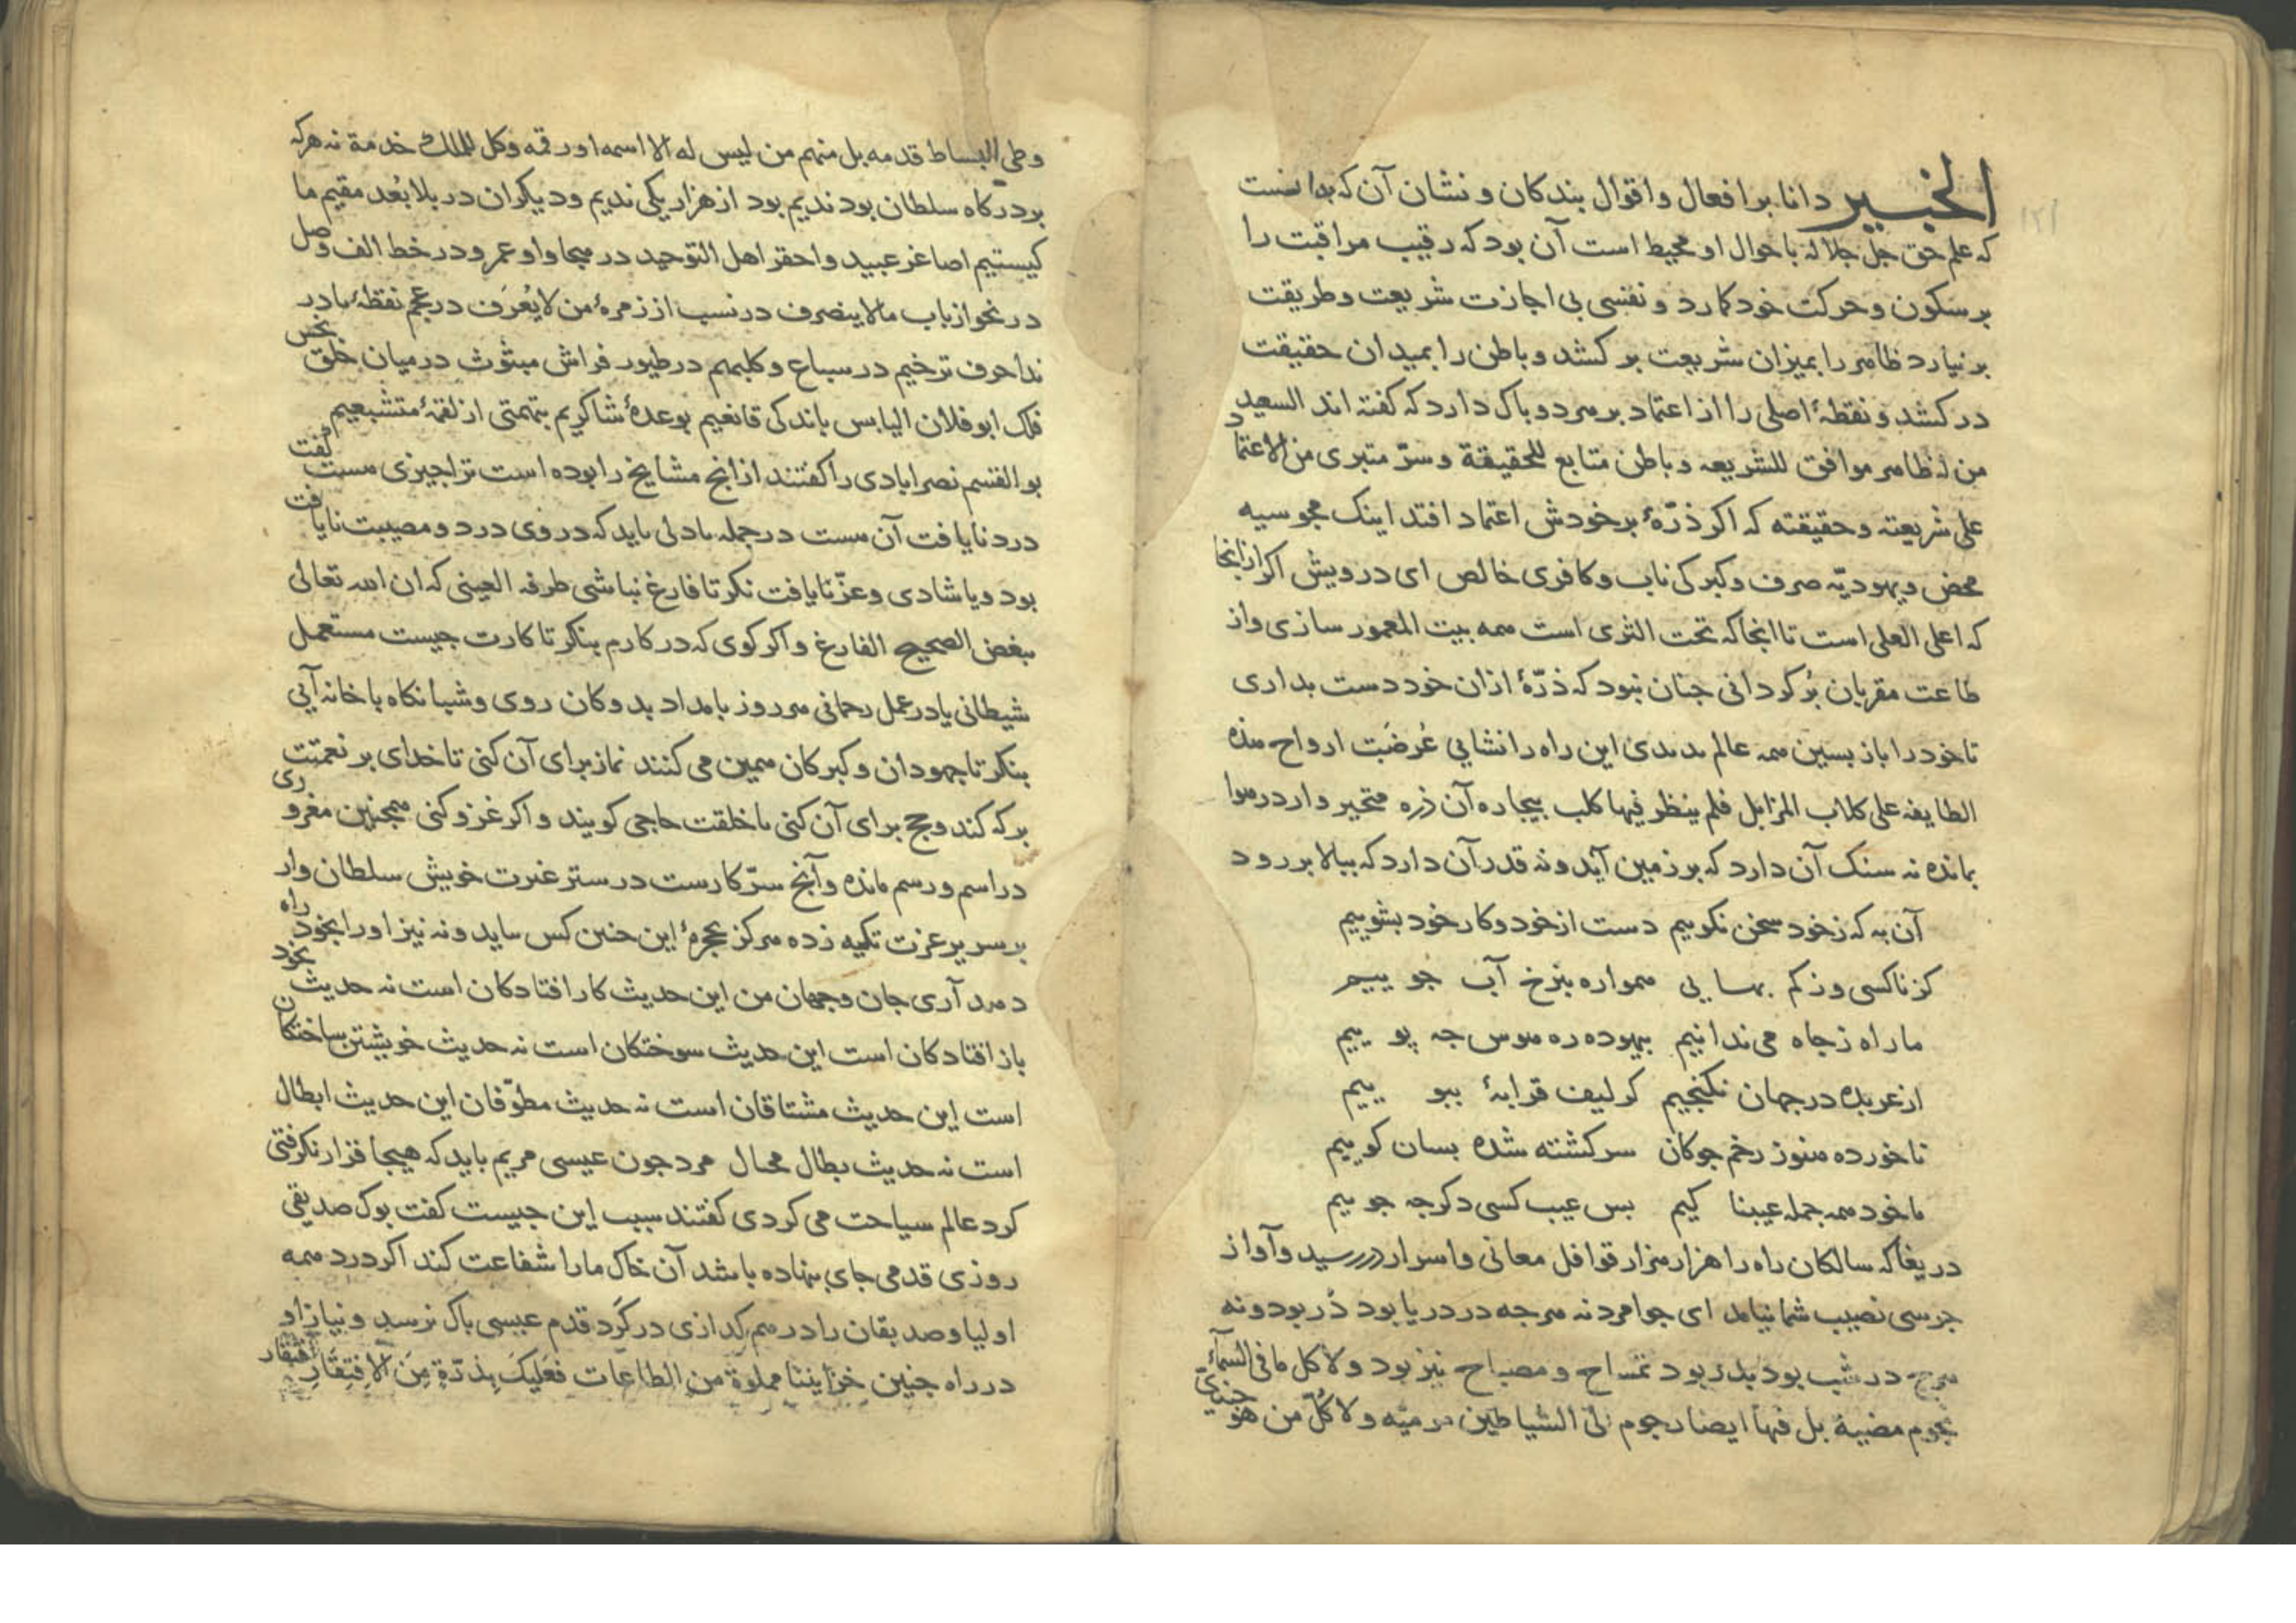 ۱۲۱
الخبیر دانا بر افعال و اقوال بندکان و نشان آن که بدانست
که علم حق جل جلاله باحوال او محیط است آن بود که رقیب مراقبت را
بر سکون و حرکت خود کمارد و نفسی بی اجازت شریعت و طریقت
بر نیارد ظاهر را بمیزان شریعت بر کشد و باطن را بمیدان حقیقت
در کشد و نقطهٔ اصلی را از اعتماد بر هر دو پاک دارد که کفته اند السعید
من له ظاهر موافق للشریعه و باطن متابع للحقیقة و سرّ متبری من الاعتماد
علی شریعته و حقیقته که اکر ذرّهٔ بر خودش اعتماد افتد اینک مجوسیه
محض و یهودیّه صرف و کبرکی ناب و کافری خالص ای درویش اکر از انجا
که اعلی العلی است تا انجا که تحت الثری است همه بیت المعمور سازی و از
طاعت مقربان پُر کردانی جنان نبود که ذرّهٔ ازان خود دست بداری
تا خود را باز بسین همه عالم ندیدی این راه را نشایی عُرضَت ارواح هذه
الطایفه علی کلاب المزابل فلم ینظر فیها کلب بیجاره آن ذره متحیر وار در هوا
بمانده نه سنک آن دارد که بر زمین آید و نه قدر آن دارد که ببالا بر رود
آن به که ز خود سخن نکوییم دست از خود و کار خود بشوییم
کز ناکسی و ز کم بهایی همواره بنرخ آب جوییم
ما راه ز جاه می ندانیم بیهوده ره هوس جه پوییم
از عربده در جهان نکنجیم کر لیف قرابهٔ ببوییم
ناخورده هنوز زخم جوکان سرکشته شده بسان کوییم
ما خود همه جمله عیبناکیم بس عیب کسی دکر جه جوییم
دریغا که سالکان راه را هزار هزار قوافل معانی و اسرار در رسید و آواز
جرسی نصیب شما نیامد ای جوامرد نه هرجه در دریا بود دُر بود و نه
هرج در شب بود بدر بود تمساح و مصباح نیز بود و لا کل ما فی السمآء
نجوم مضیة بل فیها ایضا رجوم الی الشیاطین مرمیّه و لا کلّ من هو جندیّ
وطی البساط قدمه بل منهم من لیس له الا اسمه او رقمه و کل للملک خدمة نه هرکه
بر درکاه سلطان بود ندیم بود از هزار یکی ندیم و دیکران در بلا بُعد مقیم ما
کیستیم اصاغر عبید و احقر اهل التوحید در هجا واو عمرو در خط الف وصل
در نحو از باب ما لا ینصرف در نسب از زمرهٔ من لا یُعرَف در عجم نقطهٔ با در
ندا حرف ترخیم در سباع و کلبهم در طیور فراش مبثوث در میان خلق
فلک ابو فلان الیابس باندکی قانعیم بوعدهٔ شاکریم بتهمتی از لقمهٔ متشبعیم
بو القسم نصرابادی را کفتند ازانج مشایخ را بوده است ترا جیزی هست کفت
درد نایافت آن هست در جمله بادلی باید که در وی درد و مصیبت نایافت
بود و یا شادی و عزّ نایافت نکر تا فارغ نباشی طرفه العینی که ان الله تعالی
یبغض الصحیح الفارغ و اکر کوی که در کارم بنکر تا کارت جیست مستعمل
شیطانی یا در عمل رحمانی هر روز بامداد بدوکان روی و شبانکاه با خانه آیی
بنکر تا جهودان و کبرکان همین می کنند نماز برای آن کنی تا خدای بر نعمتت
برکه کند و حج برای آن کنی تا خلقت حاجی کویند و اکر غزو کنی همجنین مغروری
در اسم و رسم مانده و آنج سرّ کارست در ستر غیرت خویش سلطان وار
بر سریر عزت تکیه زده هرکز بحجرهٔ این جنین کس نیاید و نه نیز او را بخود راه
دهد آری جان و جهان من این حدیث کار افتادکان است نه حدیث بخود
باز افتادکان است این حدیث سوختکان است نه حدیث خویشتن ساختکان
است این حدیث مشتاقان است نه حدیث مطوّفان این حدیث ابطال
است نه حدیث بطال محال مرد جون عیسی مریم باید که هیجا قرار نکرفتی
کرد عالم سیاحت می کردی کفتند سبب این جیست کفت بوک صدیقی
روزی قدمی جای بنهاده باشد آن خاک ما را شفاعت کند اکر درد همه
اولیا و صدیقان را در هم کدازی در کَرد قدم عیسی پاک نرسد و نیاز او
در راه جنین خزایننا مملوة من الطاعات فعلیک بذرّة من الافتقار